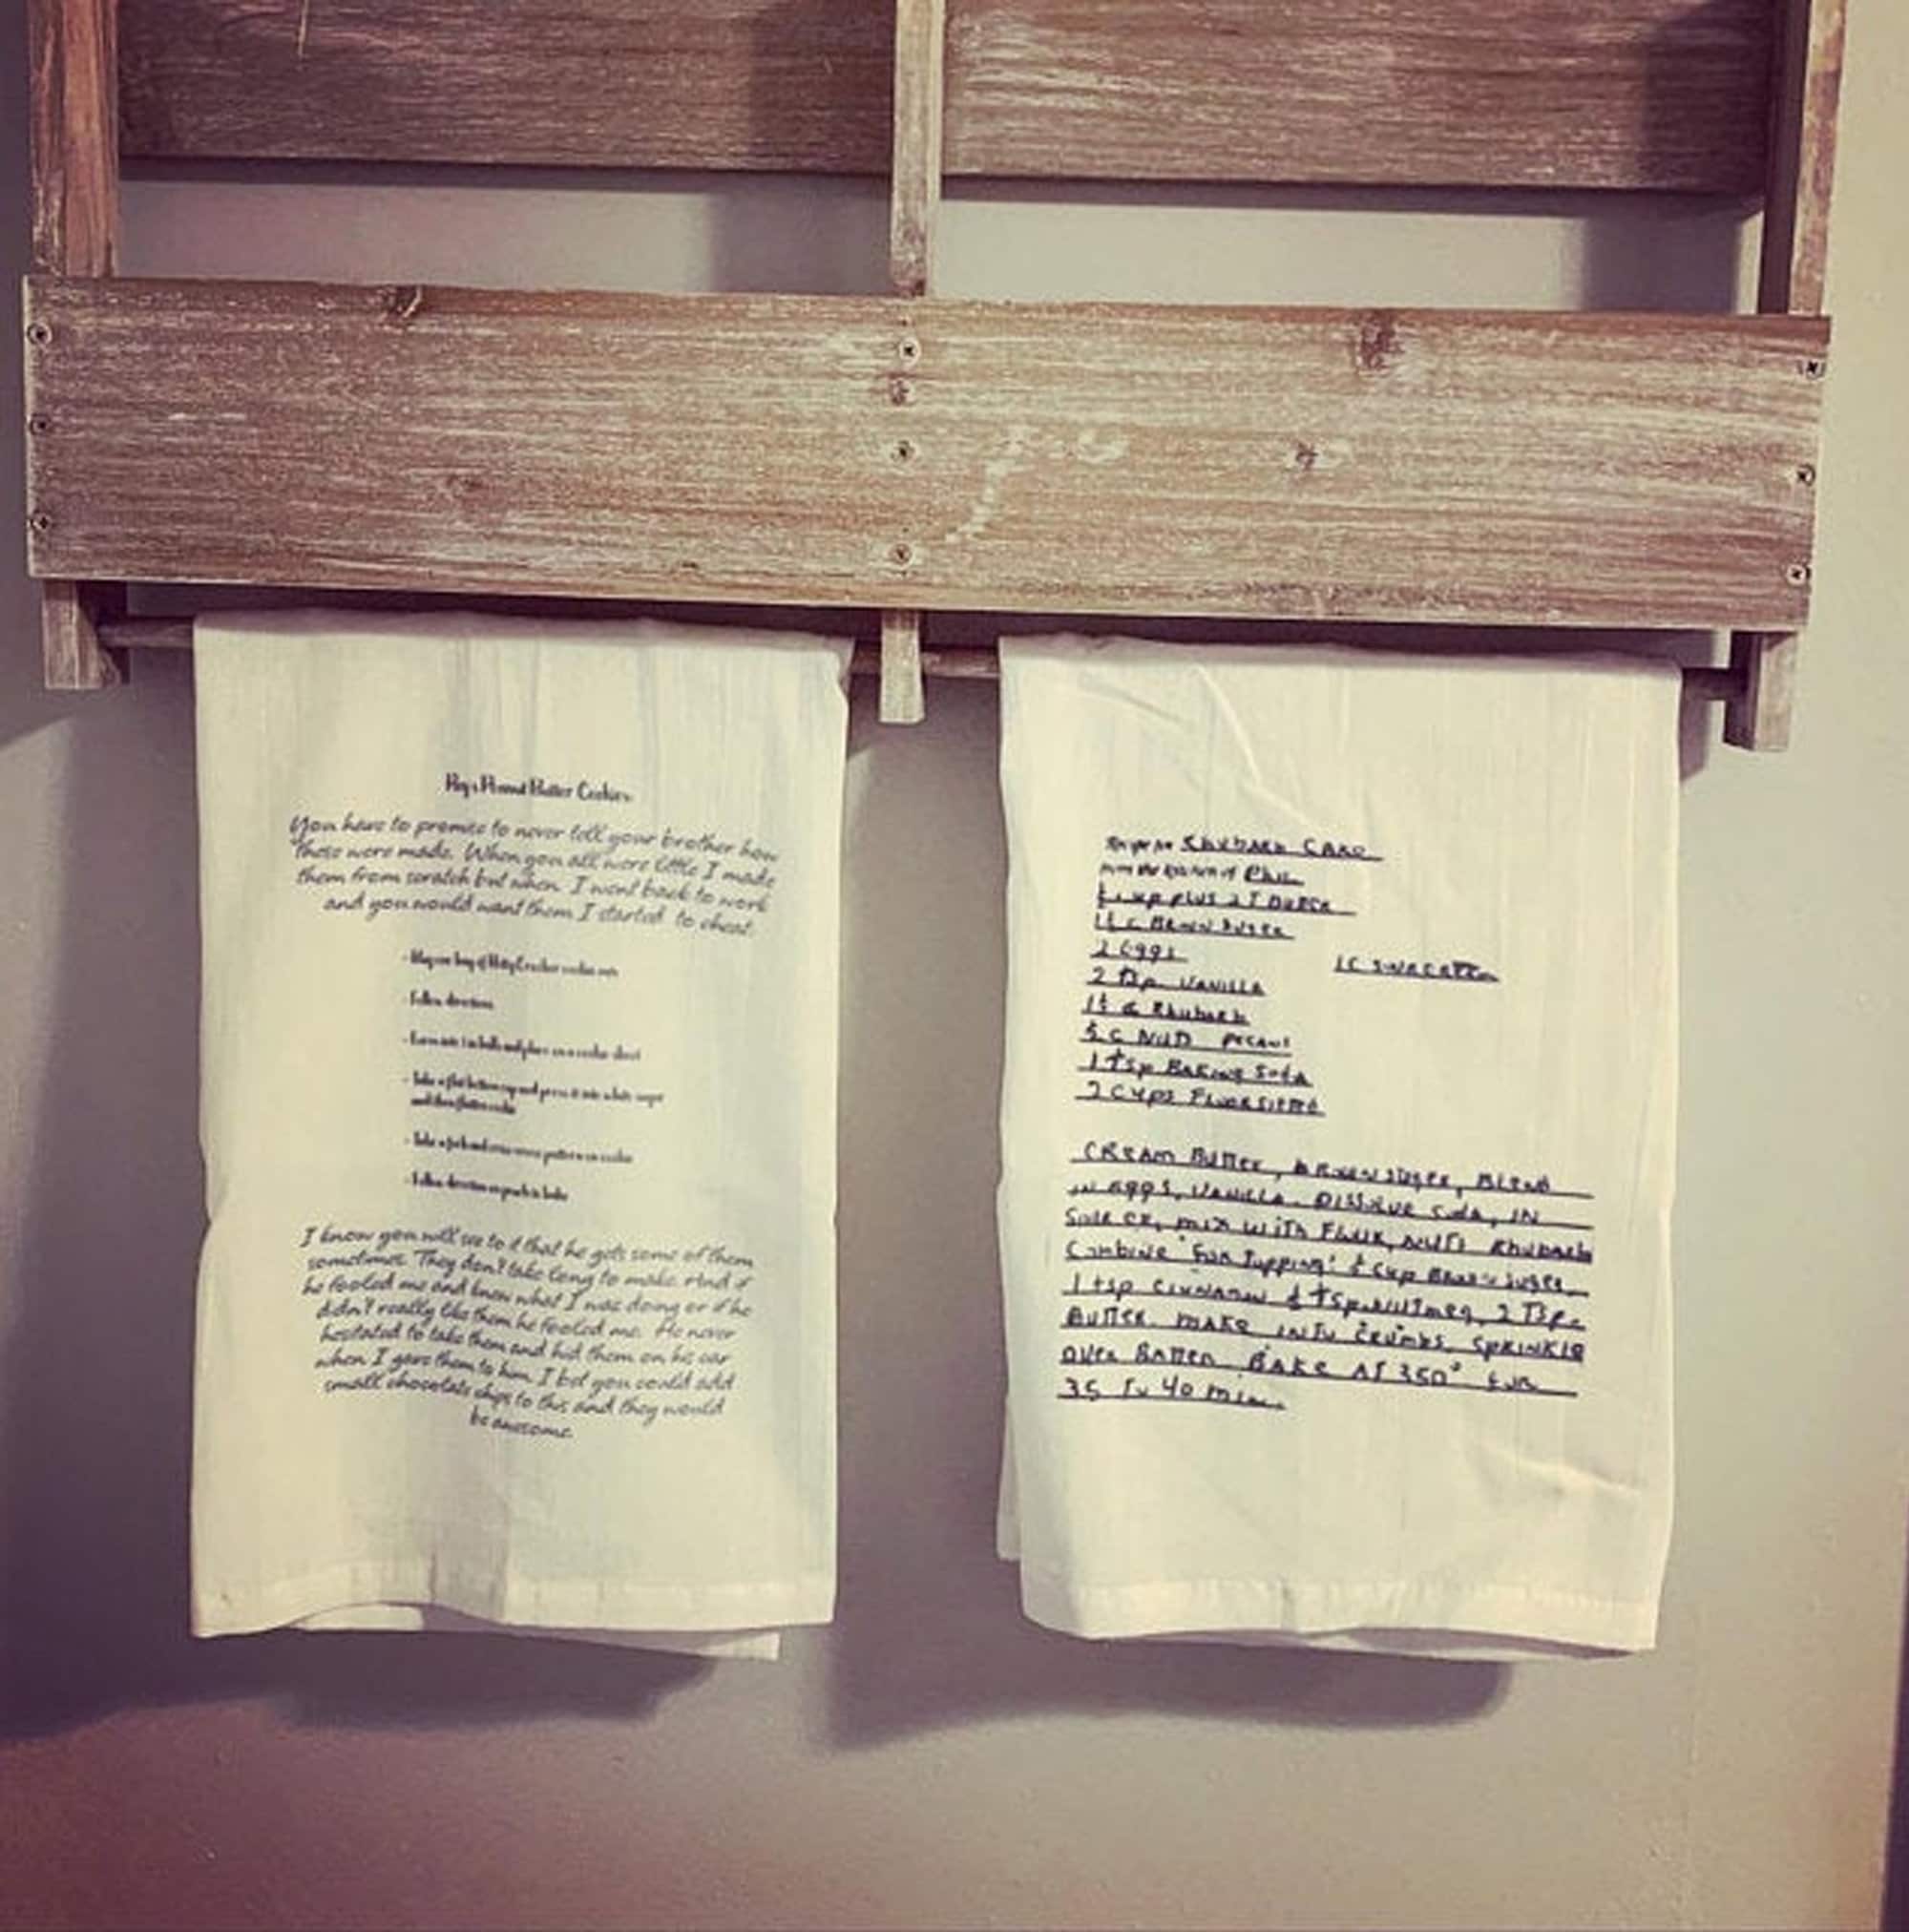 Pop's Peanut Butter Cookies
You have to promise to never tell your brother how
these were made. When you all were little I made
them from scratch but when I went back to work
and you would want them I started to cheat.
- Buy one bag of Betty Crocker cookie mix
- Follow directions
- Form into 1 in balls and place on a cookie sheet
- Take a flat bottom cup and press it into white sugar
and then flatten cookie
- Take a fork and criss cross pattern on cookie
- Follow direction on pouch to bake
I know you will see to it that he gets some of them
sometimes. They don't take long to make. And if
he fooled me and knew what I was doing or if he
didn't really like them he fooled me. He never
hesitated to take them and hid them in his car
when I gave them to him. I bet you could add
small chocolate chips to this and they would
be awesome.
Recipe for Rhubarb CAKE
from the kitchen of Phil
cup plus 2 T Butter
c Brown Suger
2 Eggs
1 c
2 Tsp. VANILLA
1½ c Rhubarb
½ c NUTS PECANS
1 tsp BAKING SodA
2 Cups Flour SIFTED
CREAM BUTTER, BROWN SUGER, BLEND
IN EGGS, VANILLA. DISSOLVE SODA, IN
mix with Flour, NUTS Rhubarb
Combine "For Topping" cup Brown suger,
1 tsp CINNAMON tsp NUTmeg, 2 Tsp.
BUTTER. MAKE INTO CRUMBS, SPRINKLE
OVER BATTER BAKE AT 350° FOR
35 To 40 min.